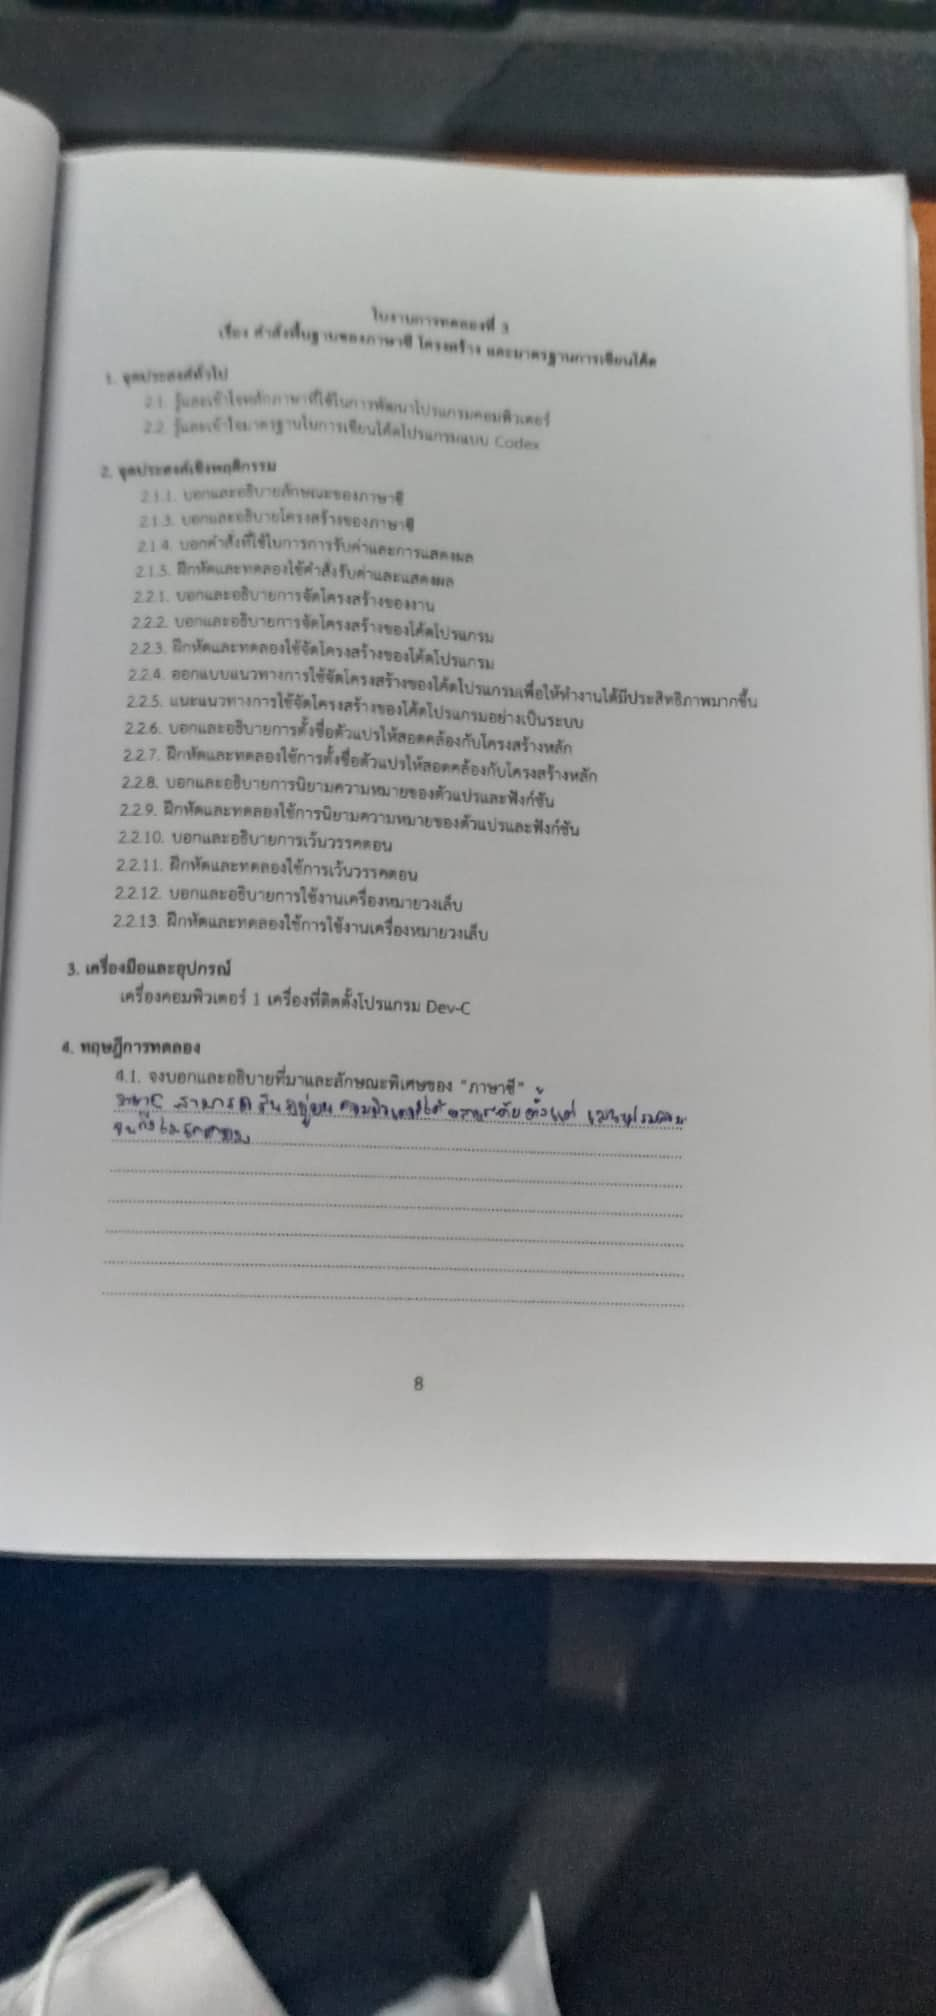 ใบงานการทดลองที่ 3
เรื่อง คำสั่งพื้นฐานของภาษาซี โครงสร้าง และมาตรฐานการเขียนโค้ด
1. จุดประสงค์ทั่วไป
2.1. รู้และเข้าใจหลักภาษาที่ใช้ในการพัฒนาโปรแกรมคอมพิวเตอร์
2.2. รู้และเข้าใจมาตรฐานในการเขียนโค้ดโปรแกรมแบบ Codex
2. จุดประสงค์เชิงพฤติกรรม
2.1.1. บอกและอธิบายลักษณะของภาษาซี
2.1.3. บอกและอธิบายโครงสร้างของภาษาซี
2.1.4. บอกคำสั่งที่ใช้ในการการรับค่าและการแสดงผล
2.1.5. ฝึกหัดและทดลองใช้คำสั่งรับค่าและแสดงผล
2.2.1. บอกและอธิบายการจัดโครงสร้างของงาน
2.2.2. บอกและอธิบายการจัดโครงสร้างของโค้ดโปรแกรม
2.2.3. ฝึกหัดและทดลองใช้จัดโครงสร้างของโค้ดโปรแกรม
2.2.4. ออกแบบแนวทางการใช้จัดโครงสร้างของโค้ดโปรแกรมเพื่อให้ทำงานได้มีประสิทธิภาพมากขึ้น
2.2.5. แนะแนวทางการใช้จัดโครงสร้างของโค้ดโปรแกรมอย่างเป็นระบบ
2.2.6. บอกและอธิบายการตั้งชื่อตัวแปรให้สอดคล้องกับโครงสร้างหลัก
2.2.7. ฝึกหัดและทดลองใช้การตั้งชื่อตัวแปรให้สอดคล้องกับโครงสร้างหลัก
2.2.8. บอกและอธิบายการนิยามความหมายของตัวแปรและฟังก์ชัน
2.2.9. ฝึกหัดและทดลองใช้การนิยามความหมายของตัวแปรและฟังก์ชัน
2.2.10. บอกและอธิบายการเว้นวรรคตอน
2.2.11. ฝึกหัดและทดลองใช้การเว้นวรรคตอน
2.2.12. บอกและอธิบายการใช้งานเครื่องหมายวงเล็บ
2.2.13. ฝึกหัดและทดลองใช้การใช้งานเครื่องหมายวงเล็บ
3. เครื่องมือและอุปกรณ์
เครื่องคอมพิวเตอร์ 1 เครื่องที่ติดตั้งโปรแกรม Dev-C
4. ทฤษฎีการทดลอง
4.1. จงบอกและอธิบายที่มาและลักษณะพิเศษของ "ภาษาซี"
ภาษาC สามารถ คอมพิวเตอร์ได้ ตั้งแต่
จนถึง
8